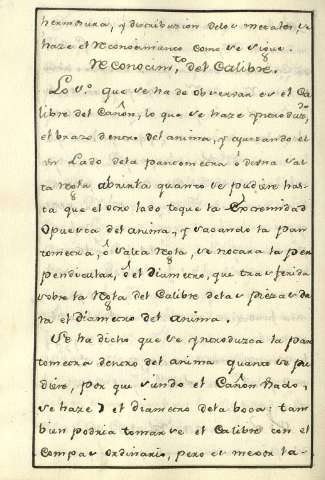 hermosura, y distribuzion delos metales, se
haze el Reconocimiento como se sigue.
Reconocim.to del Calibre.
Lo 1.º que se ha de observar es el Ca-
libre del Cañon, lo que se haze yntroduz.do
el brazo dentro del anima, y ajustando el
un Lado dela pantometra ó desta
ta Regla abrirla quanto se pudiere has-
ta que el otro lado toque la Extremidad
Opuesta del anima, y sacando la pan-
tometra, ó falsa Regla, se notara la per-
pendicular, ó el diametro, que trasferida
sobre la Regla del Calibre delas piezas da-
ra el diametro del anima.
Se ha dicho que se yntroduzca la pan-
tometra dentro del anima quanto se pu-
diere, por que siendo el Cañon usado,
se haze el diametro dela boca: tam-
bien podria tomarse el Calibre con el
Compas ordinario, pero es mejor la-